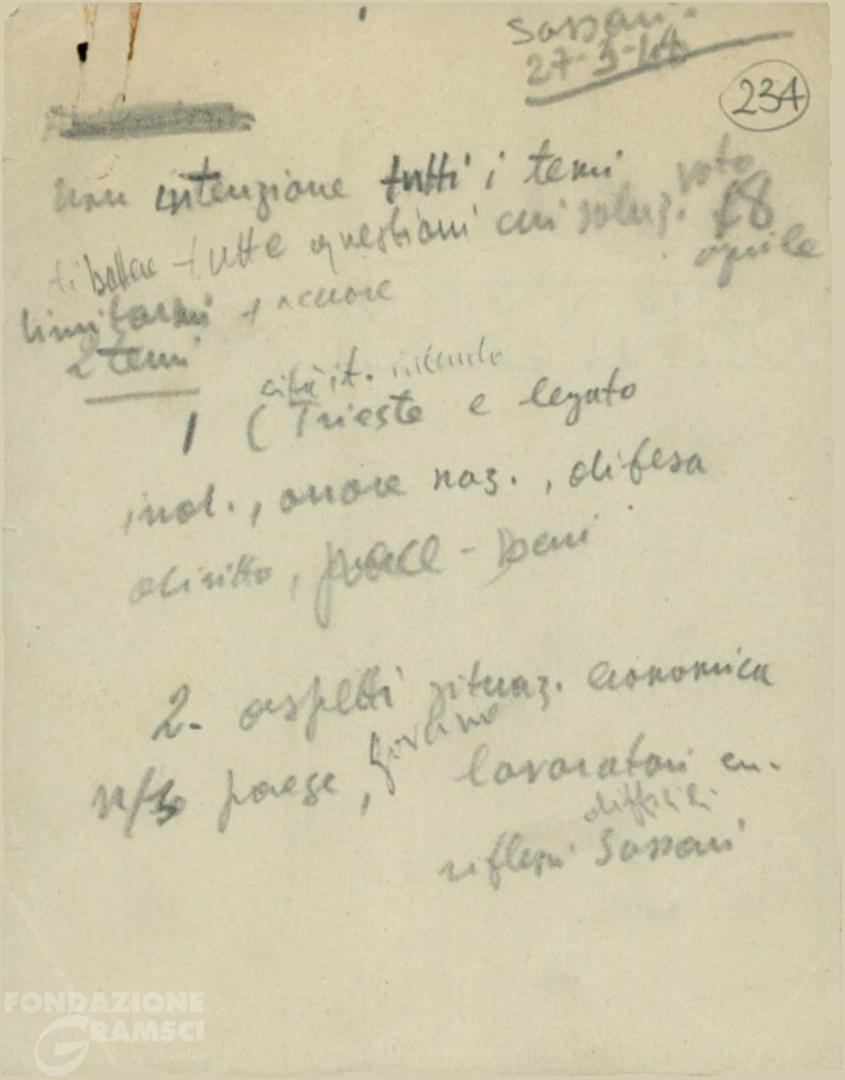 Sassari
27-3-48
234
non intenzione tutti i temi voto
dibattere tutte questioni cui soluz. 18
aprile
limitarmi
2 temi
città it.
1 (Trieste e legato
ind., onore naz., difesa
diritto, pace -
2. aspetti situaz. economica
paese, governo lavoratori
difficili
riflessi Sassari
FONDAZIONE
GRAMSCI
onlus